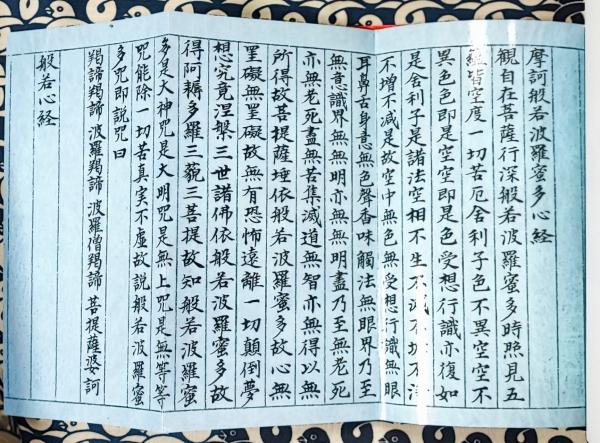 摩訶般若波羅蜜多心経
観自在菩薩行深般若波羅蜜多時照見五
蘊皆空度一切苦厄舎利子色不異空空不
異色色即是空空即是色受想行識亦復如
是舎利子是諸法空相不生不滅不垢不浄
不増不減是故空中無色無受想行識無眼
耳鼻舌身意無色声香味触法無眼界乃至
無意識界無無明亦無無明盡乃至無老死
亦無老死盡無苦集滅道無智亦無得以無
所得故菩提薩埵依般若波羅蜜多故心無
罣礙無罣礙故無有恐怖遠離一切顛倒夢
想究竟涅槃三世諸佛依般若波羅蜜多故
得阿耨多羅三藐三菩提故知般若波羅蜜
多是大神咒是大明咒是無上咒是無等等
咒能除一切苦真実不虚故説般若波羅蜜
多咒即説咒曰
羯諦羯諦 波羅羯諦 波羅僧羯諦 菩提薩婆訶
般若心経